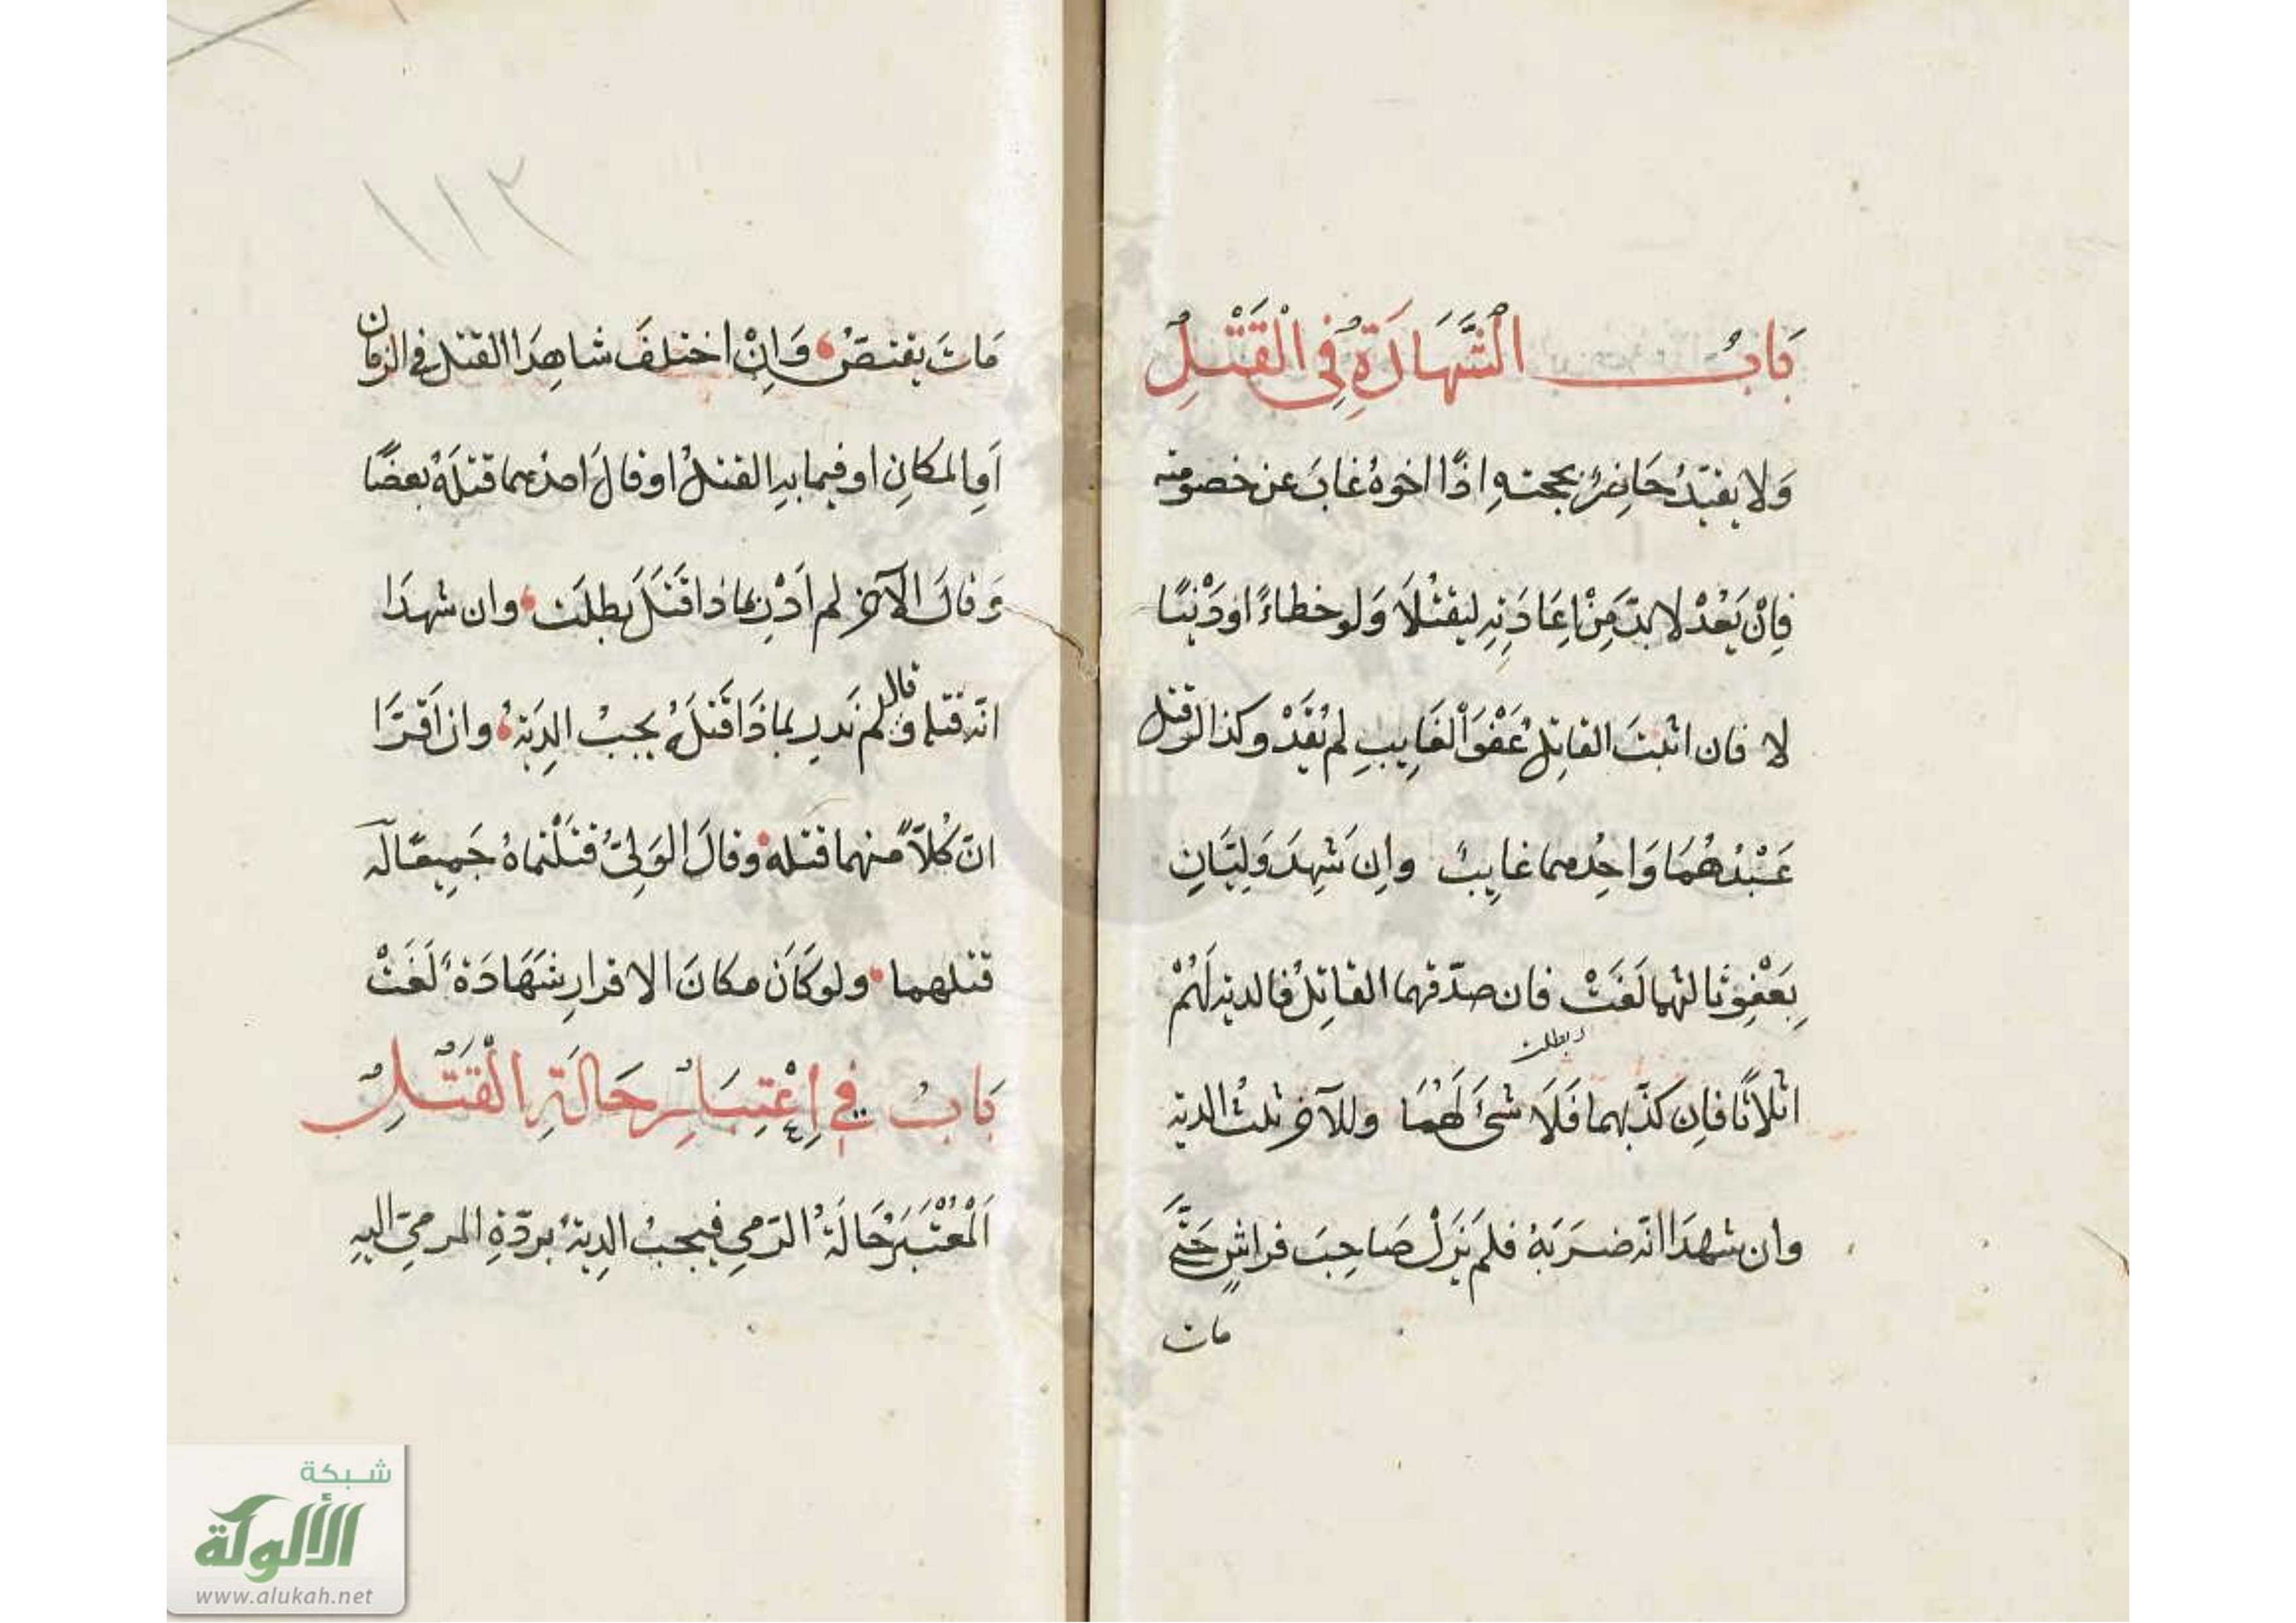 بَابُ الشَّهَادَةِ فِي الْقَتْلِ
وَلا يقيّدُ حَاضِرٌ بحجتهِ اذًا اخوهُ غابَ عن خصومته
فِانْ يَعُدْ لا بدّ مِنْ اِعَادَتِهِ ليقتُلَا وَلو خطاءً اودَيْنًا
لا فان اثبتَ القاتِلُ عَفْوَ الْغَايِبِ لم يُقَدْ وكذا لو قتل
عَبْدُهُمَا وَاحِدُهما غايِبٌ وانِ شَهِدَ وَلِيَّانِ
بِعَفْوِ ثَالثهما لَغَتْ فان صدّقهما القاتِلُ فالديه لَهُمْ
وبطلت
اثلاثًا فاِن كذّبهما فَلَا شئَ لَهُمَا وللآخر ثلثُ الديه
وان شهدَا انّه ضرَبَهُ فلم يَزَلْ صَاحِبَ فراشٍ حَتَّى
مات
١١٢
مَاتَ يقتصّ وَاِنْ اختلفَ شاهِدَا القتل في الزمان
اَوِ المكانِ او فيما بهِ القتلُ او قالَ احدُهما قتلَهُ بعصًا
وَقالَ الآخر لم اَدْرِ بماذا قَتَلَ بطلَت وان شهدَا
انّه قتله وقال لم نَدرِ بماذَا قَتلَهُ يجبُ الدِيَةُ وان اَقَرَّا
انّ كُلاًّ منهما قتله وقالَ الوَلِيُّ قتَلْتماهُ جَمِيعًا لَه
قتلهما ولو كَانَ مكانَ الاقرارِ شَهَادَةٌ لَغَتْ
بَابُ فِي اِعْتِبَارِ حَالَةِ الْقَتْلِ
اَلْمُعْتَبَرُ حَالَةُ الرَّمىِ فيجبُ الدِيةُ بردّةِ المرمىِّ اليهِ
شبكة
الألوكة
www.alukah.net